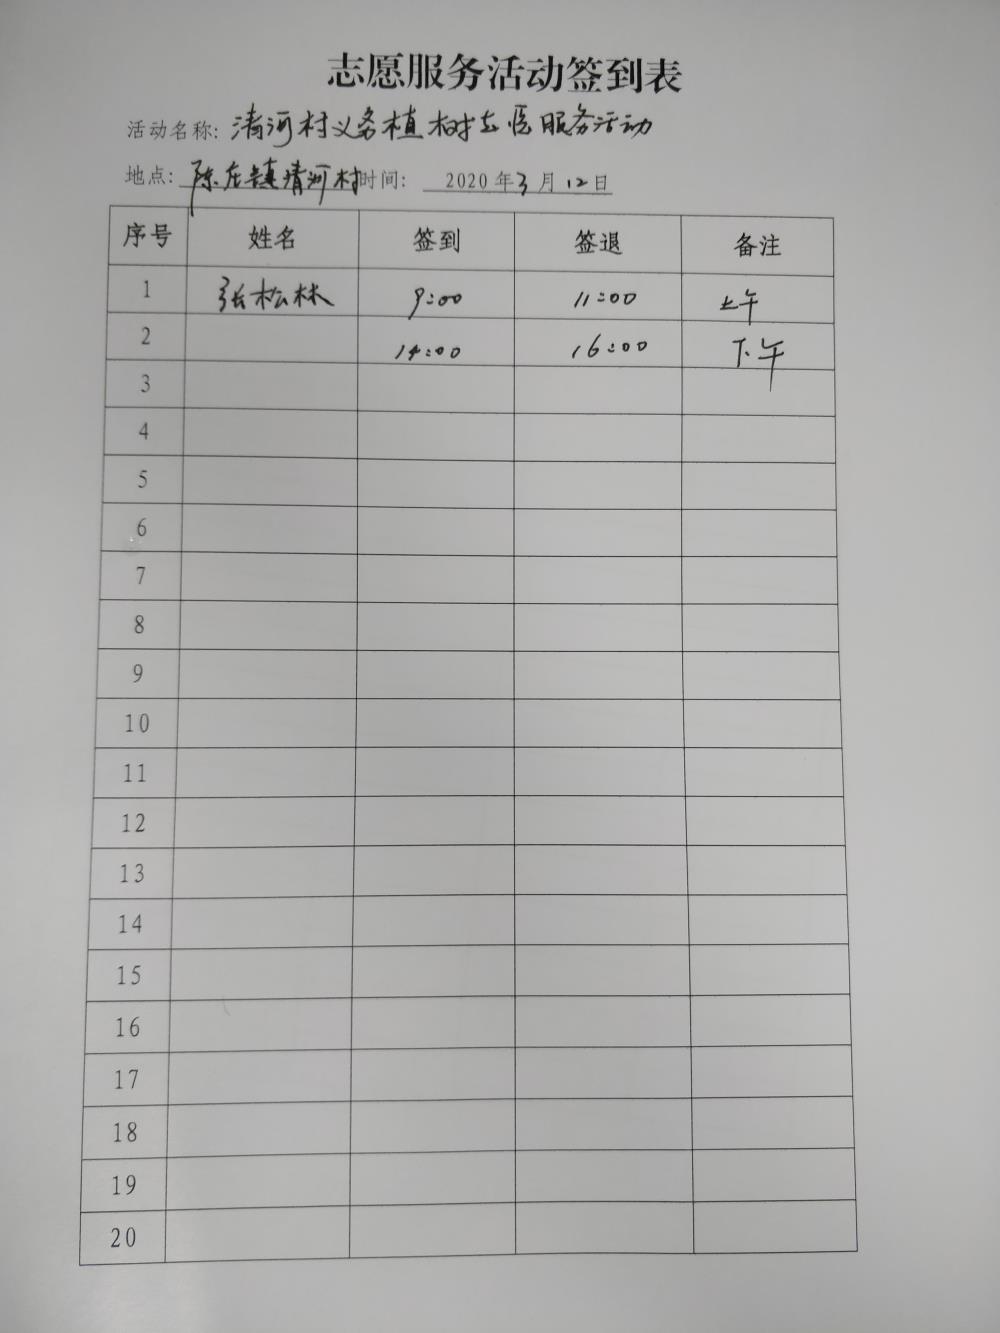 志愿服务活动签到表
活动名称: 清河村义务植树志愿服务活动
地点: 陈庄镇清河村 时间: 2020年3月12日
序号 姓名 签到 签退 备注
1 张松林 9:00 11:00 上午
2 14:00 16:00 下午
3
4
5
6
7
8
9
10
11
12
13
14
15
16
17
18
19
20